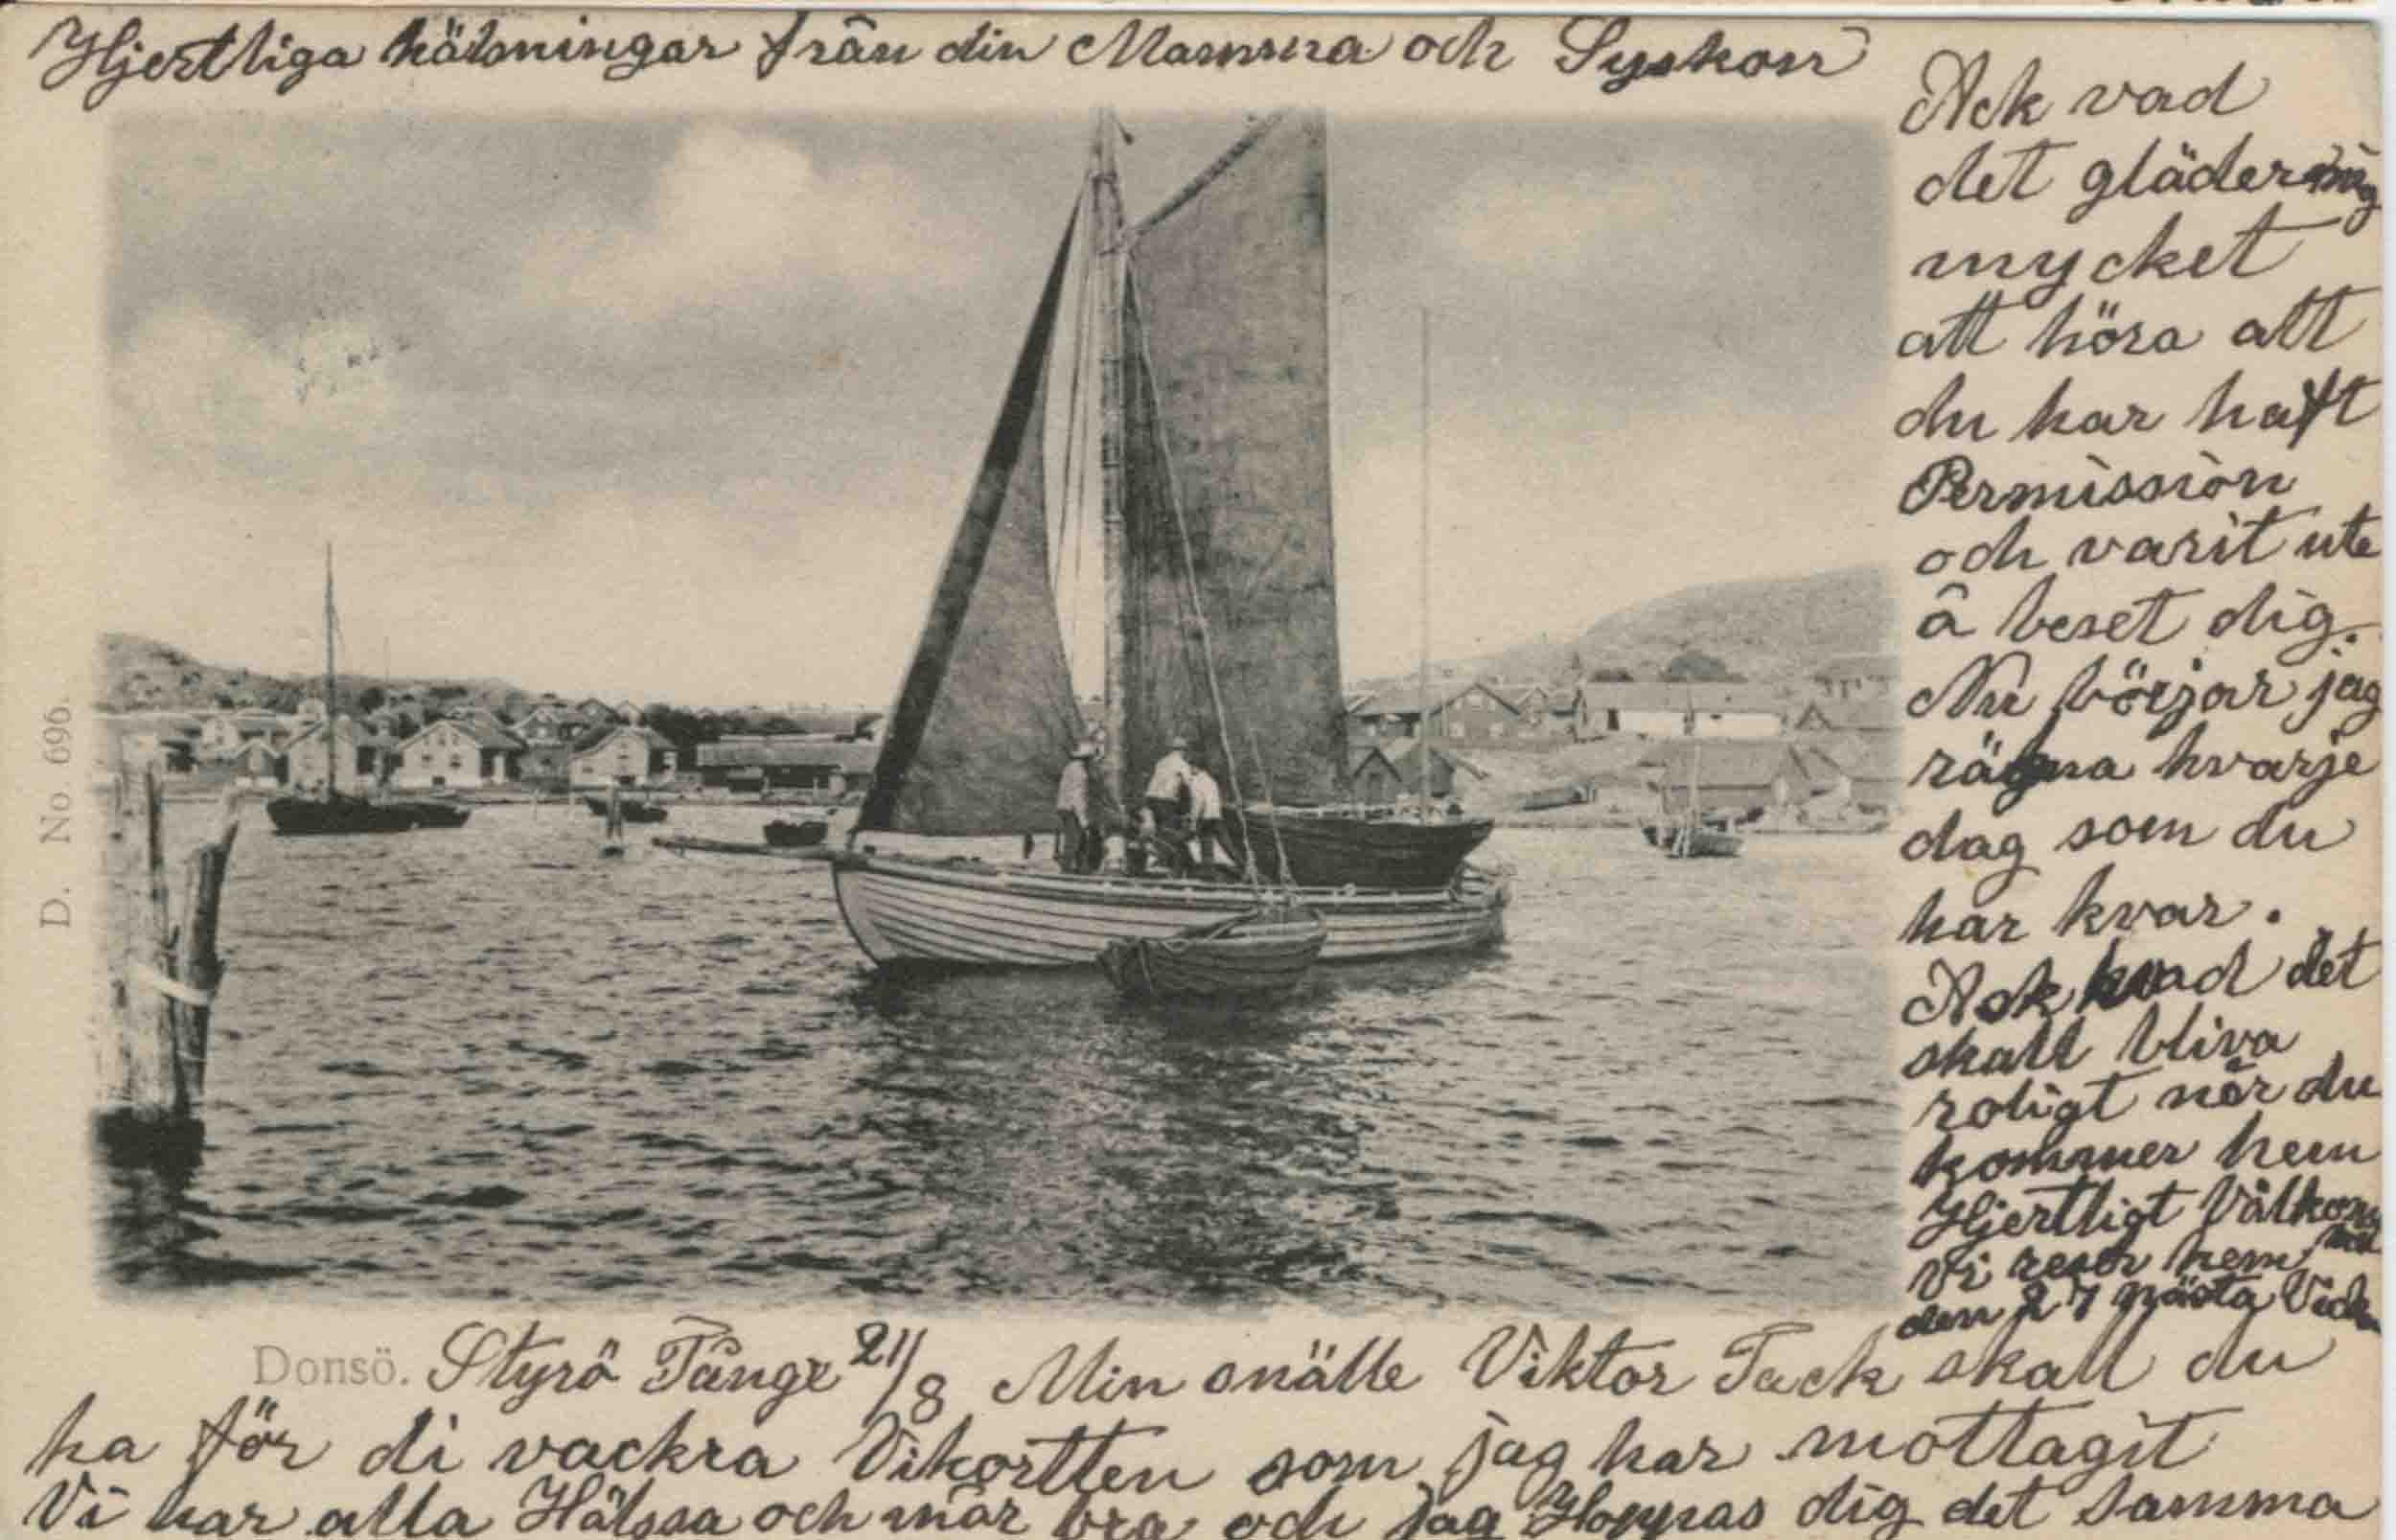 Hjertliga hälsningar från din Mamma och Syskon
Ack vad
det gläder mig
mycket
att höra att
du har haft
Permission
och varit ute
å beset dig.
Nu börjar jag
rägna hvarje
dag som du
har kvar.
Ack hvad det
skall bliva
roligt när du
kommer hem
Hjertligt Välkom
Vi reser hem
den 27 nästa Veck
D. No. 696.
Donsö. Styrö Tånge 21/8 Min snälle Viktor Tack skall du
ha för di vackra Vikortten som jag har mottagit
Vi har alla Hälssa och mår bra och jag Hoppas dig det samma